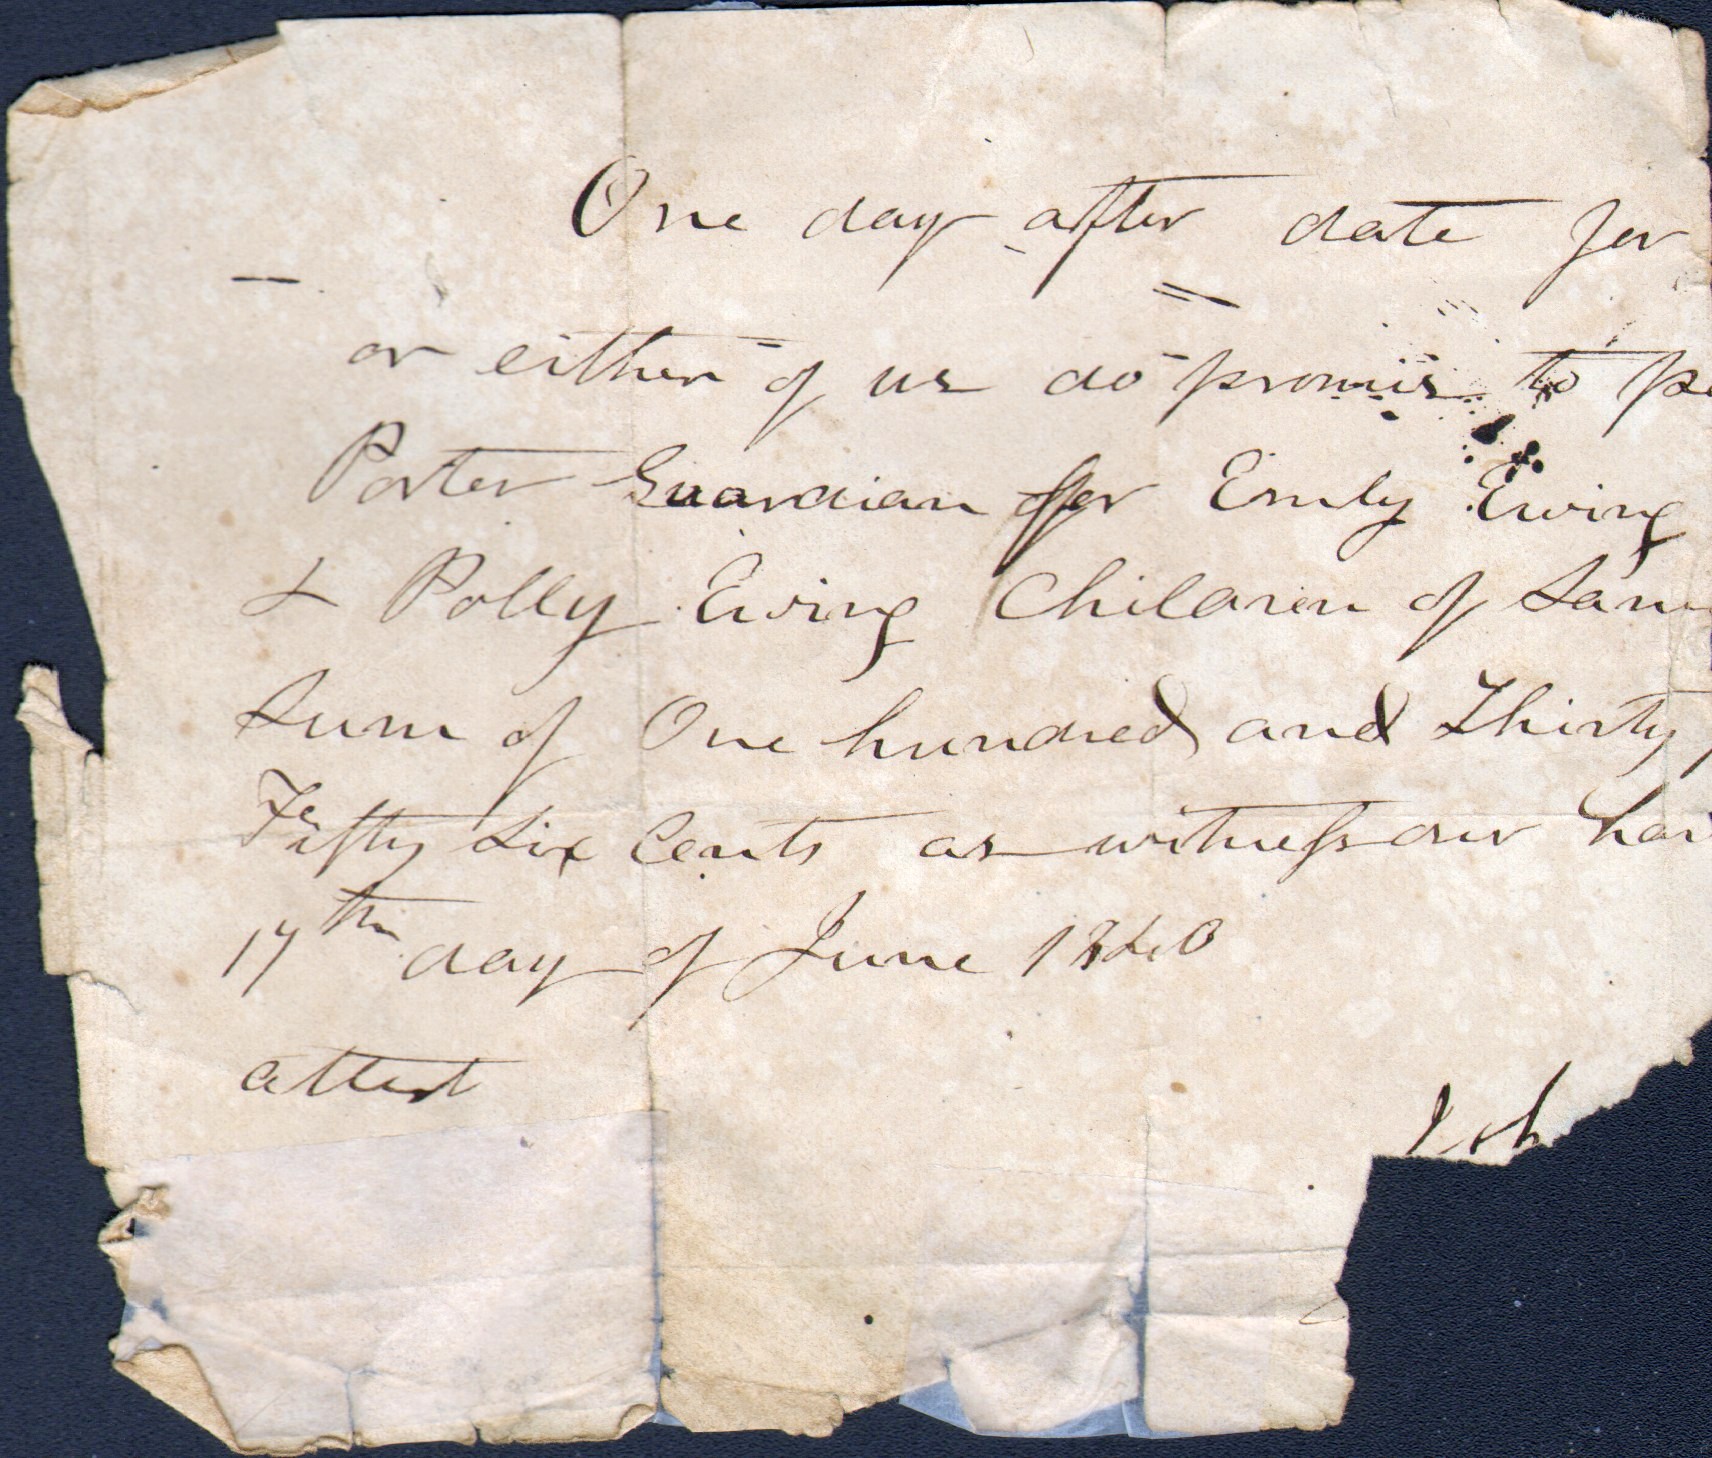 One day after date for
or either of us do promis to pa
Porter Guardian for Emily Ewing
& Polly Ewing Children of Sam
Sum of One hundred and Thirty
Fifty Six Cents as witness our han
17th day of June 1840
attest
Joh